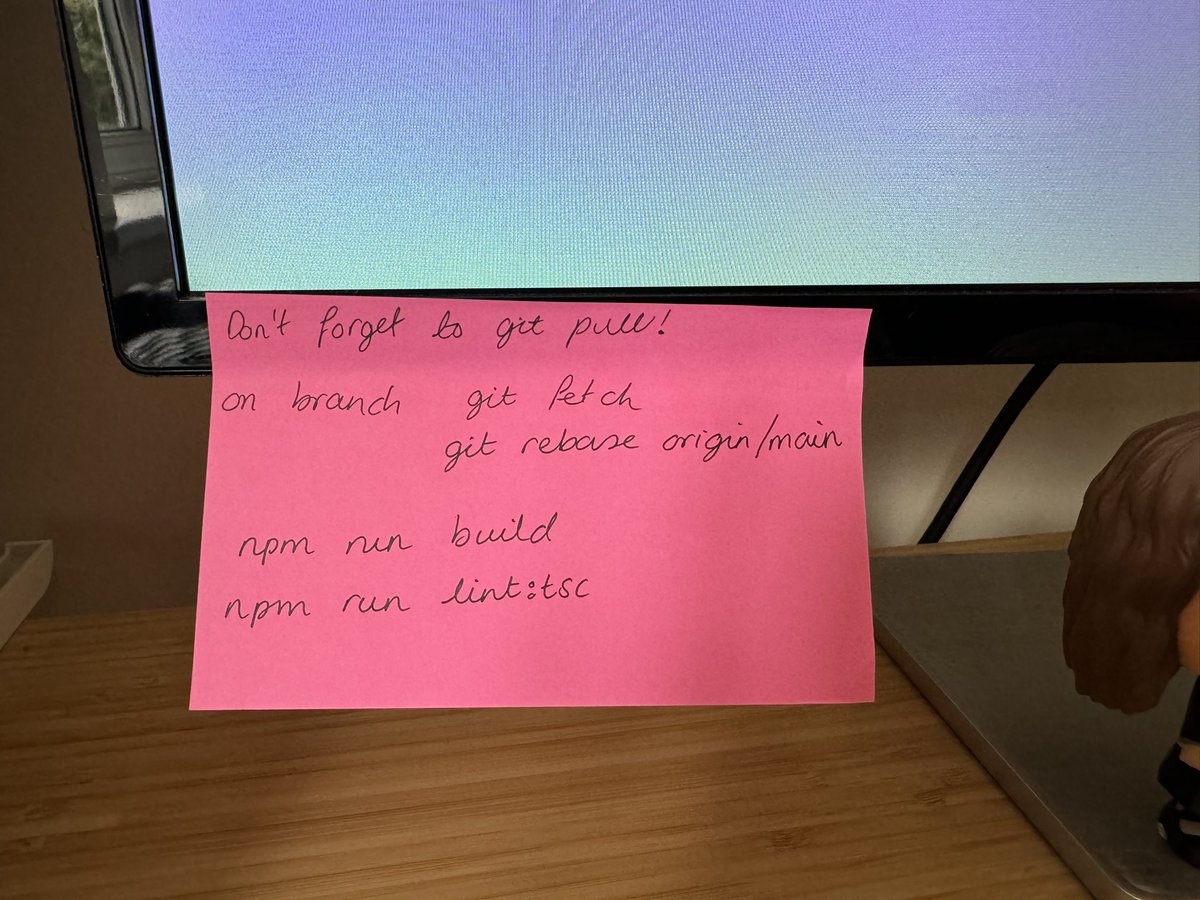 Don't forget to git pull!
on branch git fetch
git rebase origin/main
npm run build
npm run lint:tsc